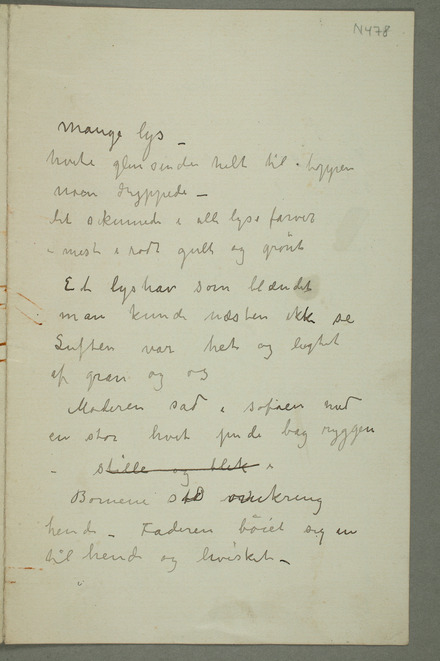 N478
mange lys –
hvite glinsende helt til toppen
noen dryppede –
det skinnede i alle lyse farver
– mest i rødt gult og grønt
Et lyshav som blændet
man kunde næsten ikke se
Luften var het og lugtet
af gran og os
Moderen sad i sofaen med
en stor hvit pude bag ryggen
– stille og blek
Børnene stod omkring
hende – Faderen bøiet sig
til hende og hvisket –